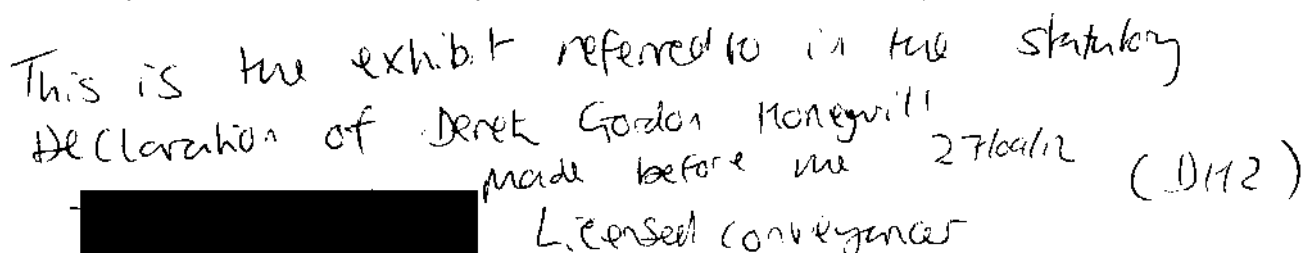 This is the exhibit referred to in the statutory
Declaration of Derek Gordon
made before me 27/09/12 (DH2)
Licensed conveyancer